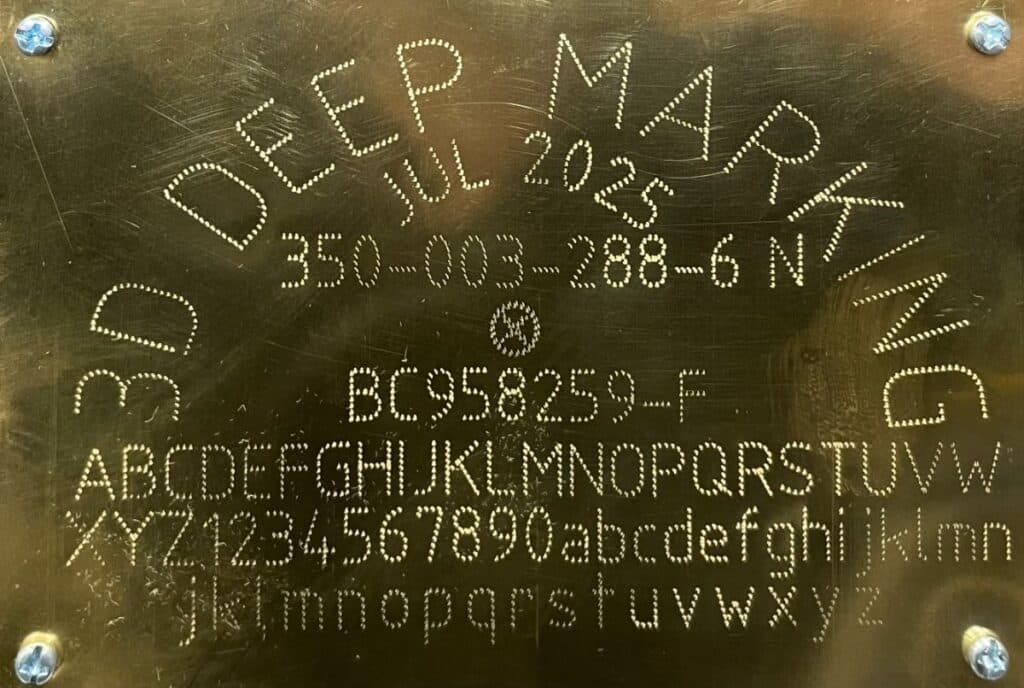 3D DEEP MARKING
JUL 2025
350-003-288-6 N
BC958259-F
ABCDEFGHIJKLMNOPQRSTUVW
XYZ1234567890abcdefghijklmn
jklmnopqrstuvwxyz